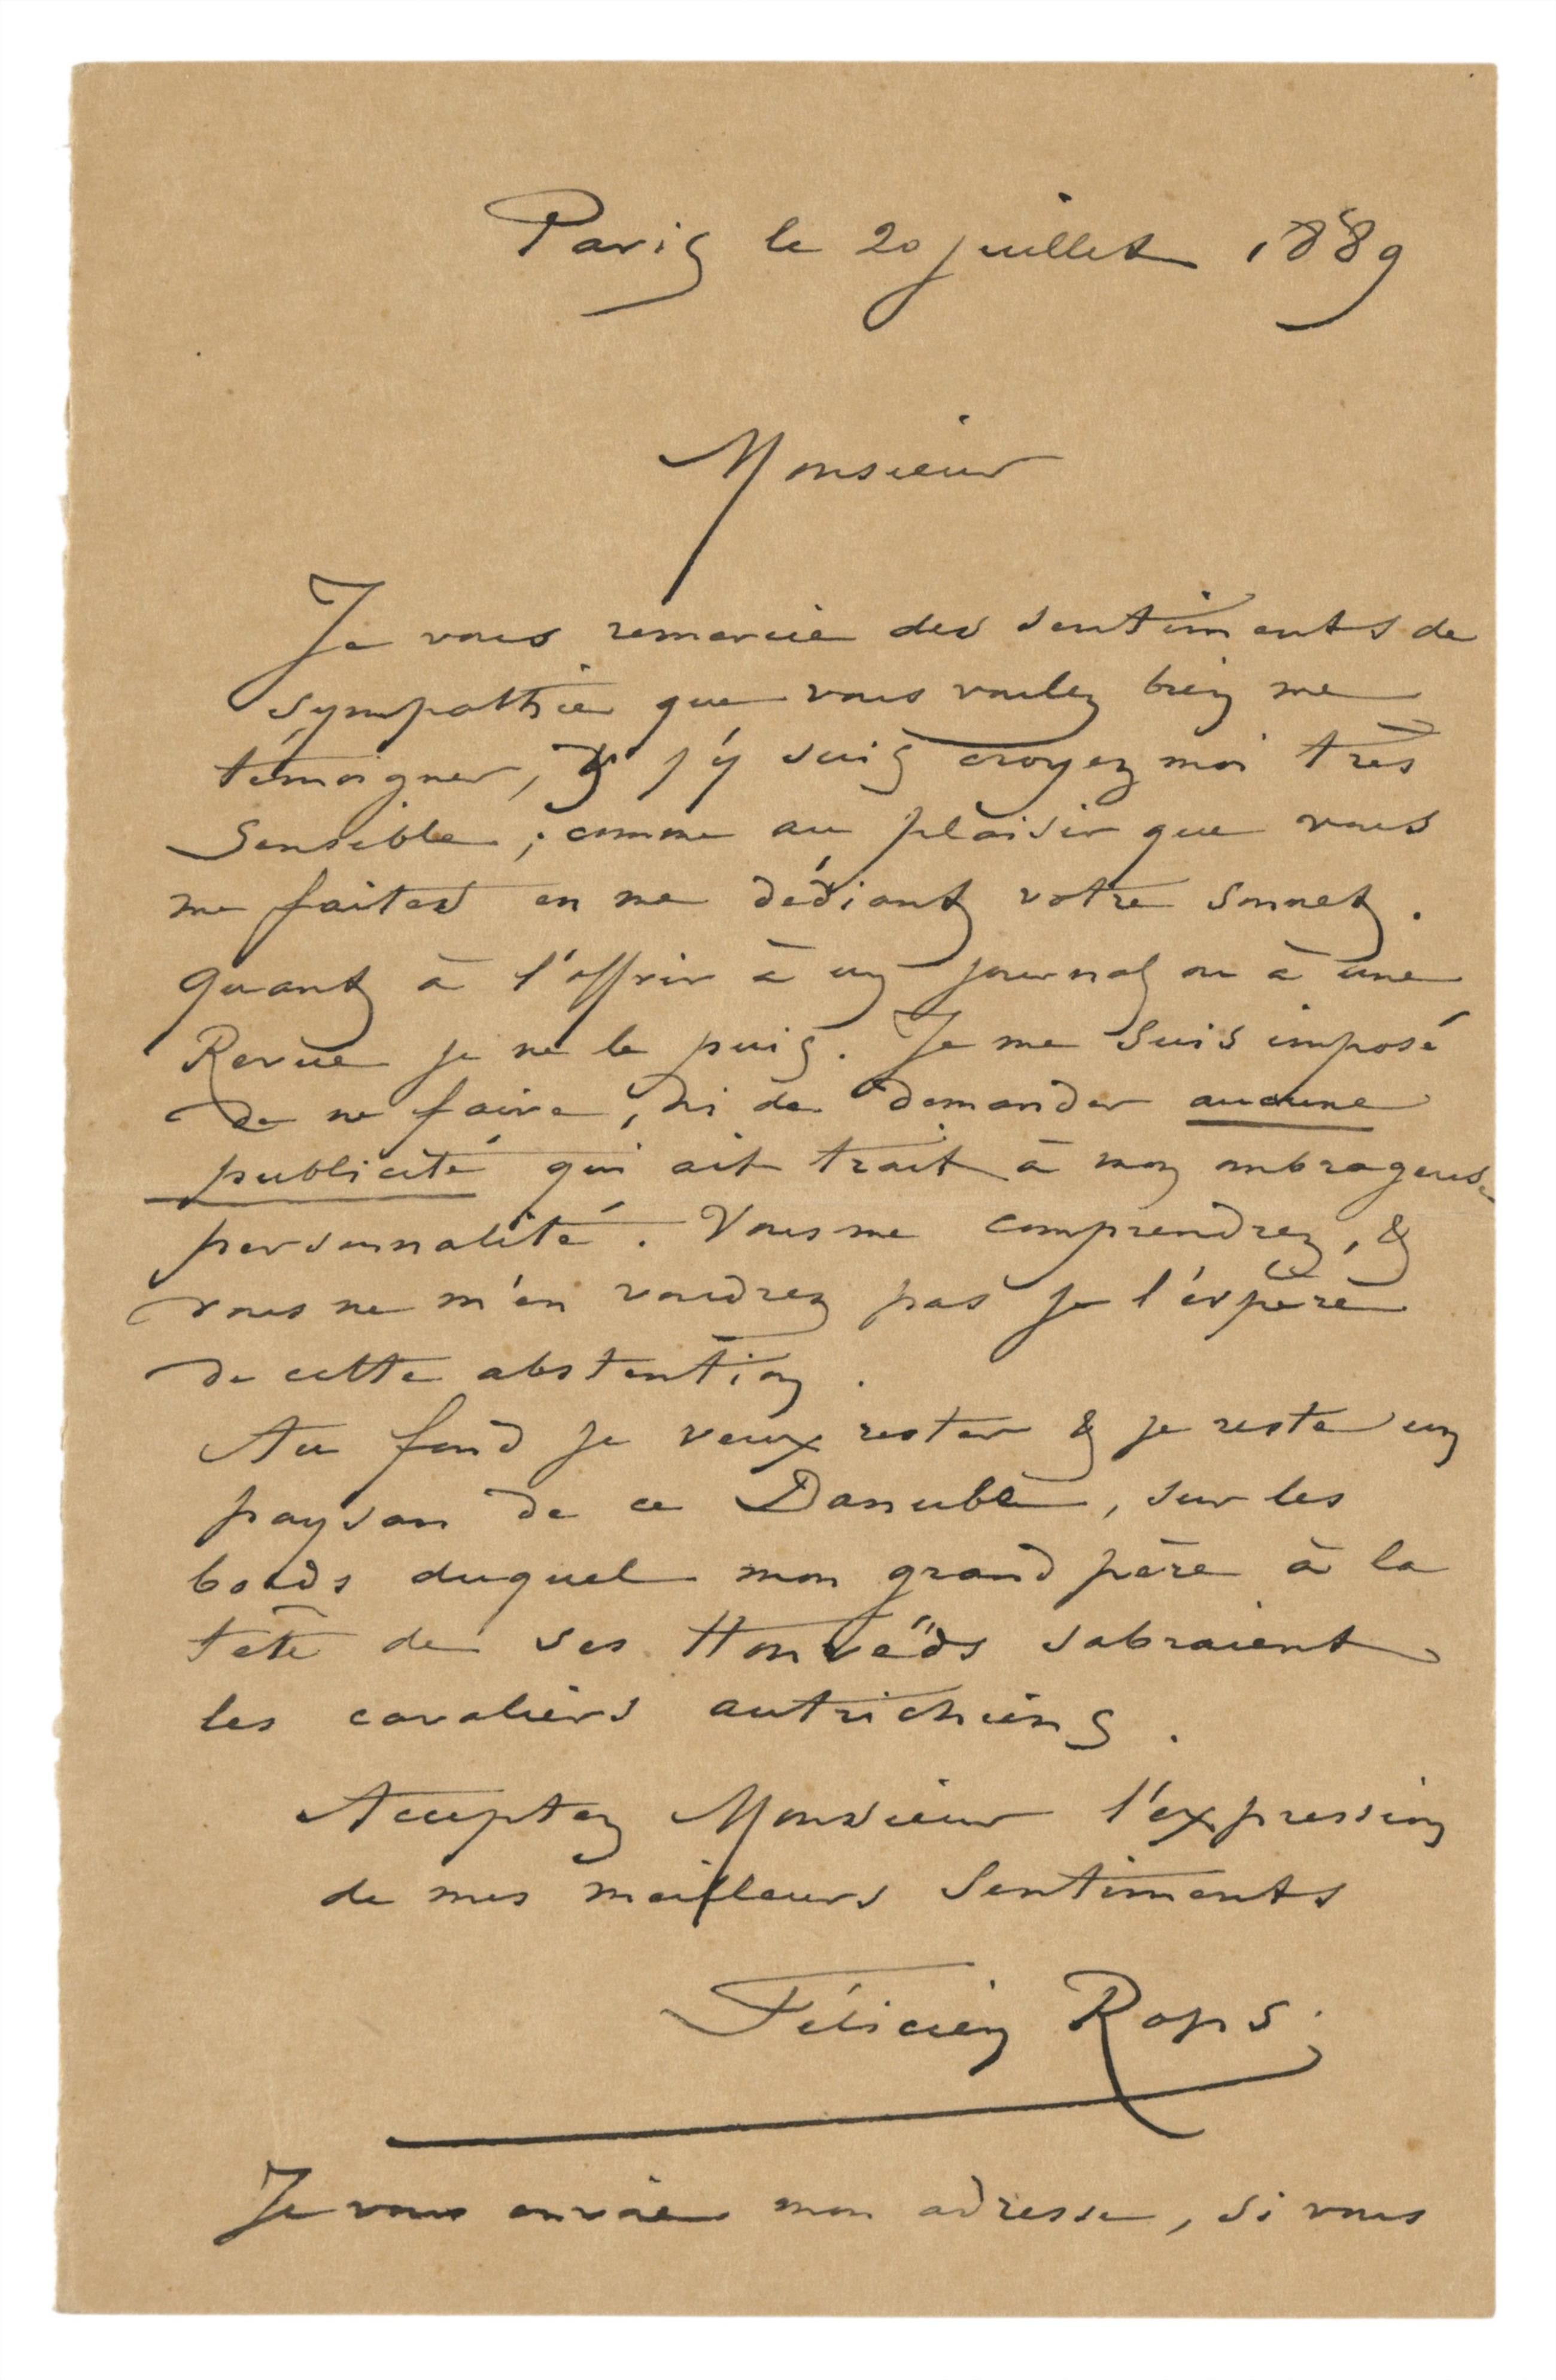 Paris le 20 juillet 1889
Monsieur
Je vous remercie des sentiments de
sympathie que vous voulez bien me
témoigner, & j'y suis croyez moi très
sensible ; comme au plaisir que vous
me faites en me dédiant votre sonnet.
Quant à l'offrir à un journal ou à une
Revue je ne le puis. Je me suis imposé
de ne faire, ni de demander aucune
publicité qui ait trait à mon ombrageuse
personnalité. Vous me comprendrez, &
vous ne m'en voudrez pas je l'éspère
de cette abstention.
Au fond je veux rester & je reste un
paysan de ce Danube, sur les
bords duquel mon grand père à la
tête de ses Honvéds sabraient
les cavaliers autrichiens.
Acceptez Monsieur l'expression
de mes meilleurs sentiments
Félicien Rops.
Je vous envoie mon adresse, si vous